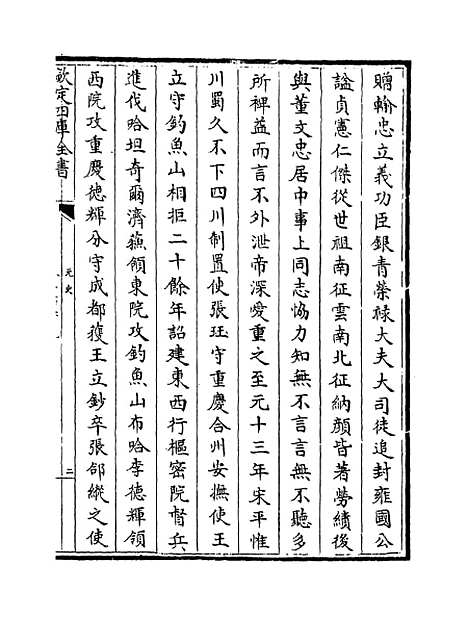 贈翰忠立義功臣銀青榮祿大夫大司徒追封雍國公
諡貞憲仁傑從世祖南征雲南北征納顏皆著勞績後
與董文忠居中事上同志協力知無不言言無不聽多
所裨益而言不外泄帝深愛重之至元十三年宋平惟
川蜀久不下四川制置使張珏守重慶合州安撫使王
立守釣魚山相拒二十餘年詔建東西行樞密院督兵
進伐哈坦奇爾濟蘓領東院攻釣魚山布哈李德輝領
西院攻重慶德輝分守成都獲王立鈔卒張郃縱之使
欽定四庫全書
元史
二